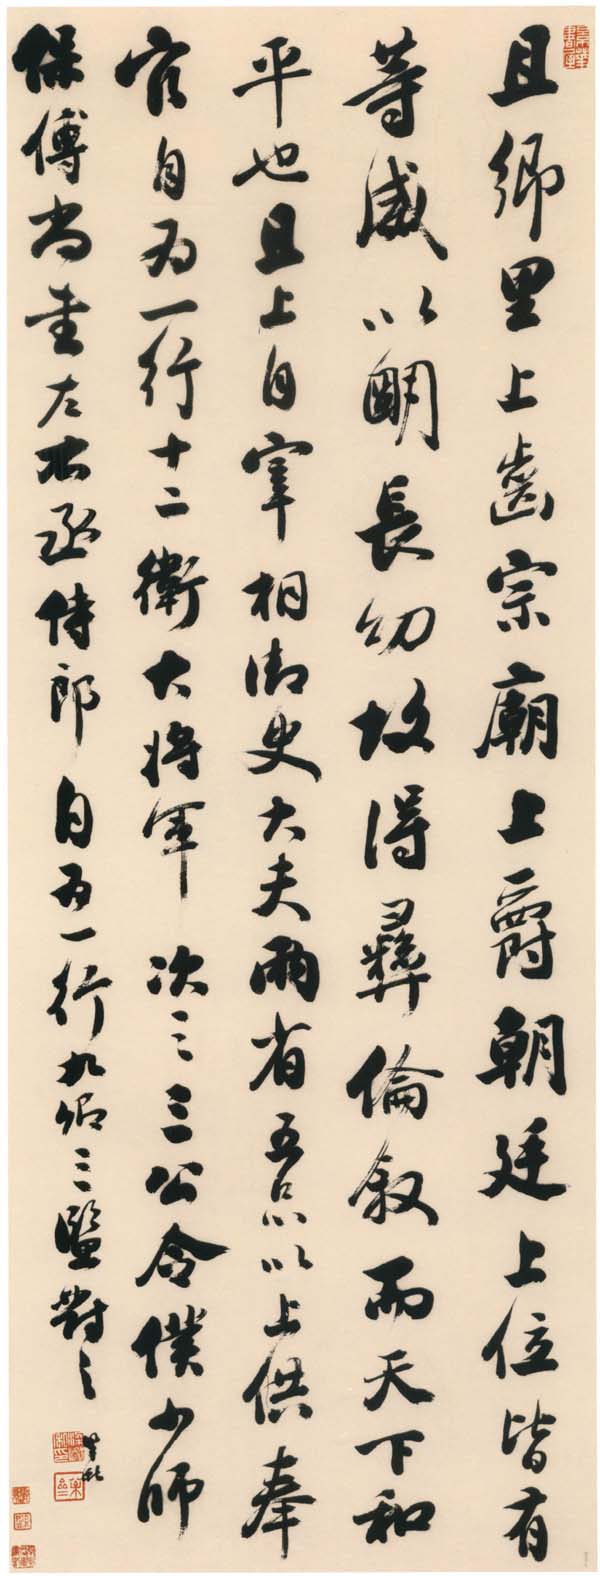 且鄉里上齒宗廟上爵朝廷上位皆有
等威以明長幼故得彝倫敘而天下和
平也且上自宰相御史大夫兩省五品以上供奉
官自為一行十二衛大將軍次之三公令僕少師
保傅尚書左右丞侍郎自為一行九卿三監對之